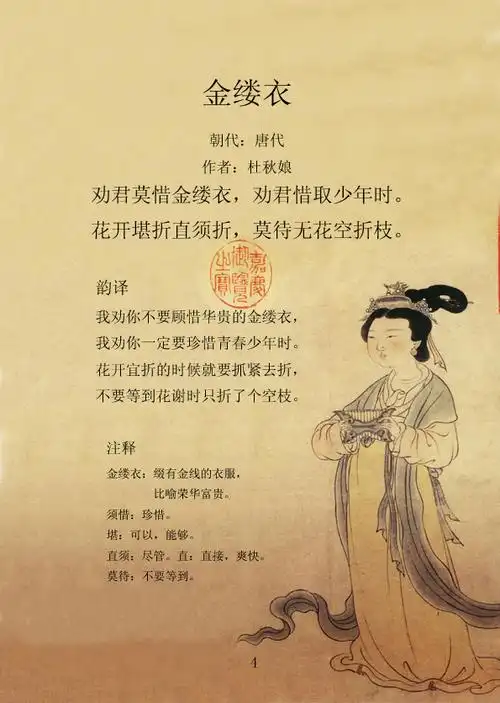 金缕衣
朝代：唐代
作者：杜秋娘
劝君莫惜金缕衣，劝君惜取少年时。
花开堪折直须折，莫待无花空折枝。
嘉慶
御覽
之寶
韵译
我劝你不要顾惜华贵的金缕衣，
我劝你一定要珍惜青春少年时。
花开宜折的时候就要抓紧去折，
不要等到花谢时只折了个空枝。
注释
金缕衣：缀有金线的衣服，
比喻荣华富贵。
须惜：珍惜。
堪：可以，能够。
直须：尽管。直：直接，爽快。
莫待：不要等到。
4